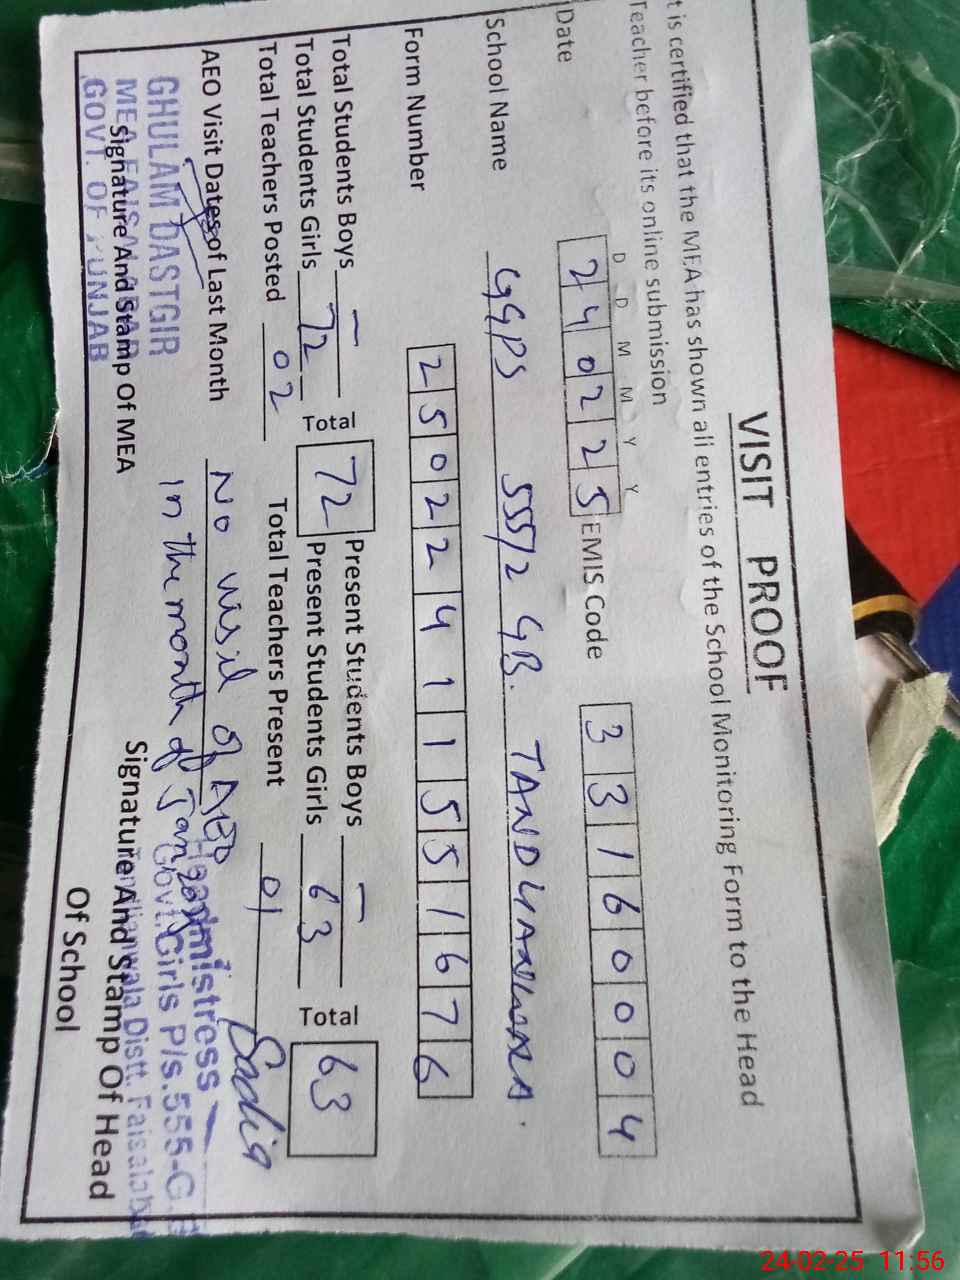 VISIT PROOF
t is certified that the MEA has shown all entries of the School Monitoring Form to the Head
Teacher before its online submission
D D M M Y Y
Date 240225 EMIS Code 33160004
School Name GGPS 555/2 GB. TANDLIANWALA.
Form Number 250224115516 76
Total Students Boys — Present Students Boys —
Total Students Girls 72 Total 72 Present Students Girls 63 Total 63
Total Teachers Posted 02 Total Teachers Present 01
AEO Visit Dates of Last Month No visit of AEO
In the month of Jan
Sadia
GHULAM DASTGIR
MEA FAISALABAD
GOVT. OF PUNJAB
Signature And Stamp Of MEA
Headmistress
Govt. Girls P/s. 555-G.B
Tandlianwala Distt. Faisalabad
Signature And Stamp Of Head
Of School
24-02-25 11:56